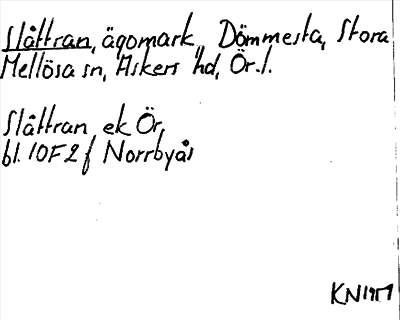 Slåttran, ägomark, Dömmesta, Stora
Mellösa sn, Askers hd, Ör.l.
Slåttran, ek Ör,
bl. 10F2f Norrbyås
KN 1957